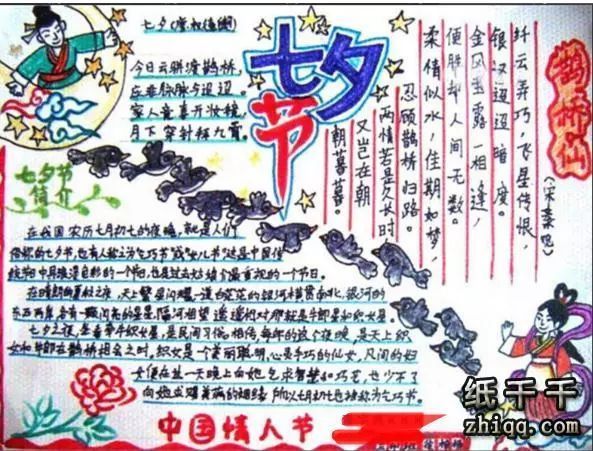 七夕(唐·权德舆)
今日云骈渡鹊桥，
应非脉脉与迢迢。
家人竞喜开妆镜，
月下穿针拜九霄。
七夕
节
鹊桥仙
(宋秦观)
纤云弄巧，飞星传恨，
银汉迢迢暗度。
金风玉露一相逢，
便胜却人间无数。
柔情似水，佳期如梦，
忍顾鹊桥归路。
两情若是久长时
又岂在朝
朝暮暮。
七夕节
简介
在我国农历七月初七的夜晚，就是人们
俗称的七夕节，也有人称之为"乞巧节"或"女儿节"这是中国传
统节日中最浪漫色彩的一个节日，也是过去姑娘们最重视的一个节日。
在晴朗的夏秋之夜，天上繁星闪耀，一道白茫茫的银河横贯南北，银河的
东西两岸，各有一颗闪亮的星星，隔河相望，遥遥相对，那就是牛郎星和织女星。
七夕之夜，坐看牵牛织女星，是民间习俗。相传，每年的这个夜晚，是天上织
女和牛郎在鹊桥相会之时，织女是一个美丽聪明、心灵手巧的仙女，凡间的妇
女便在这一天晚上向她乞求智慧和巧艺，也少不了
向她求赐美满的姻缘，所以七月初七也被称为乞巧节。
中国情人节
纸千千
zhiqq.com